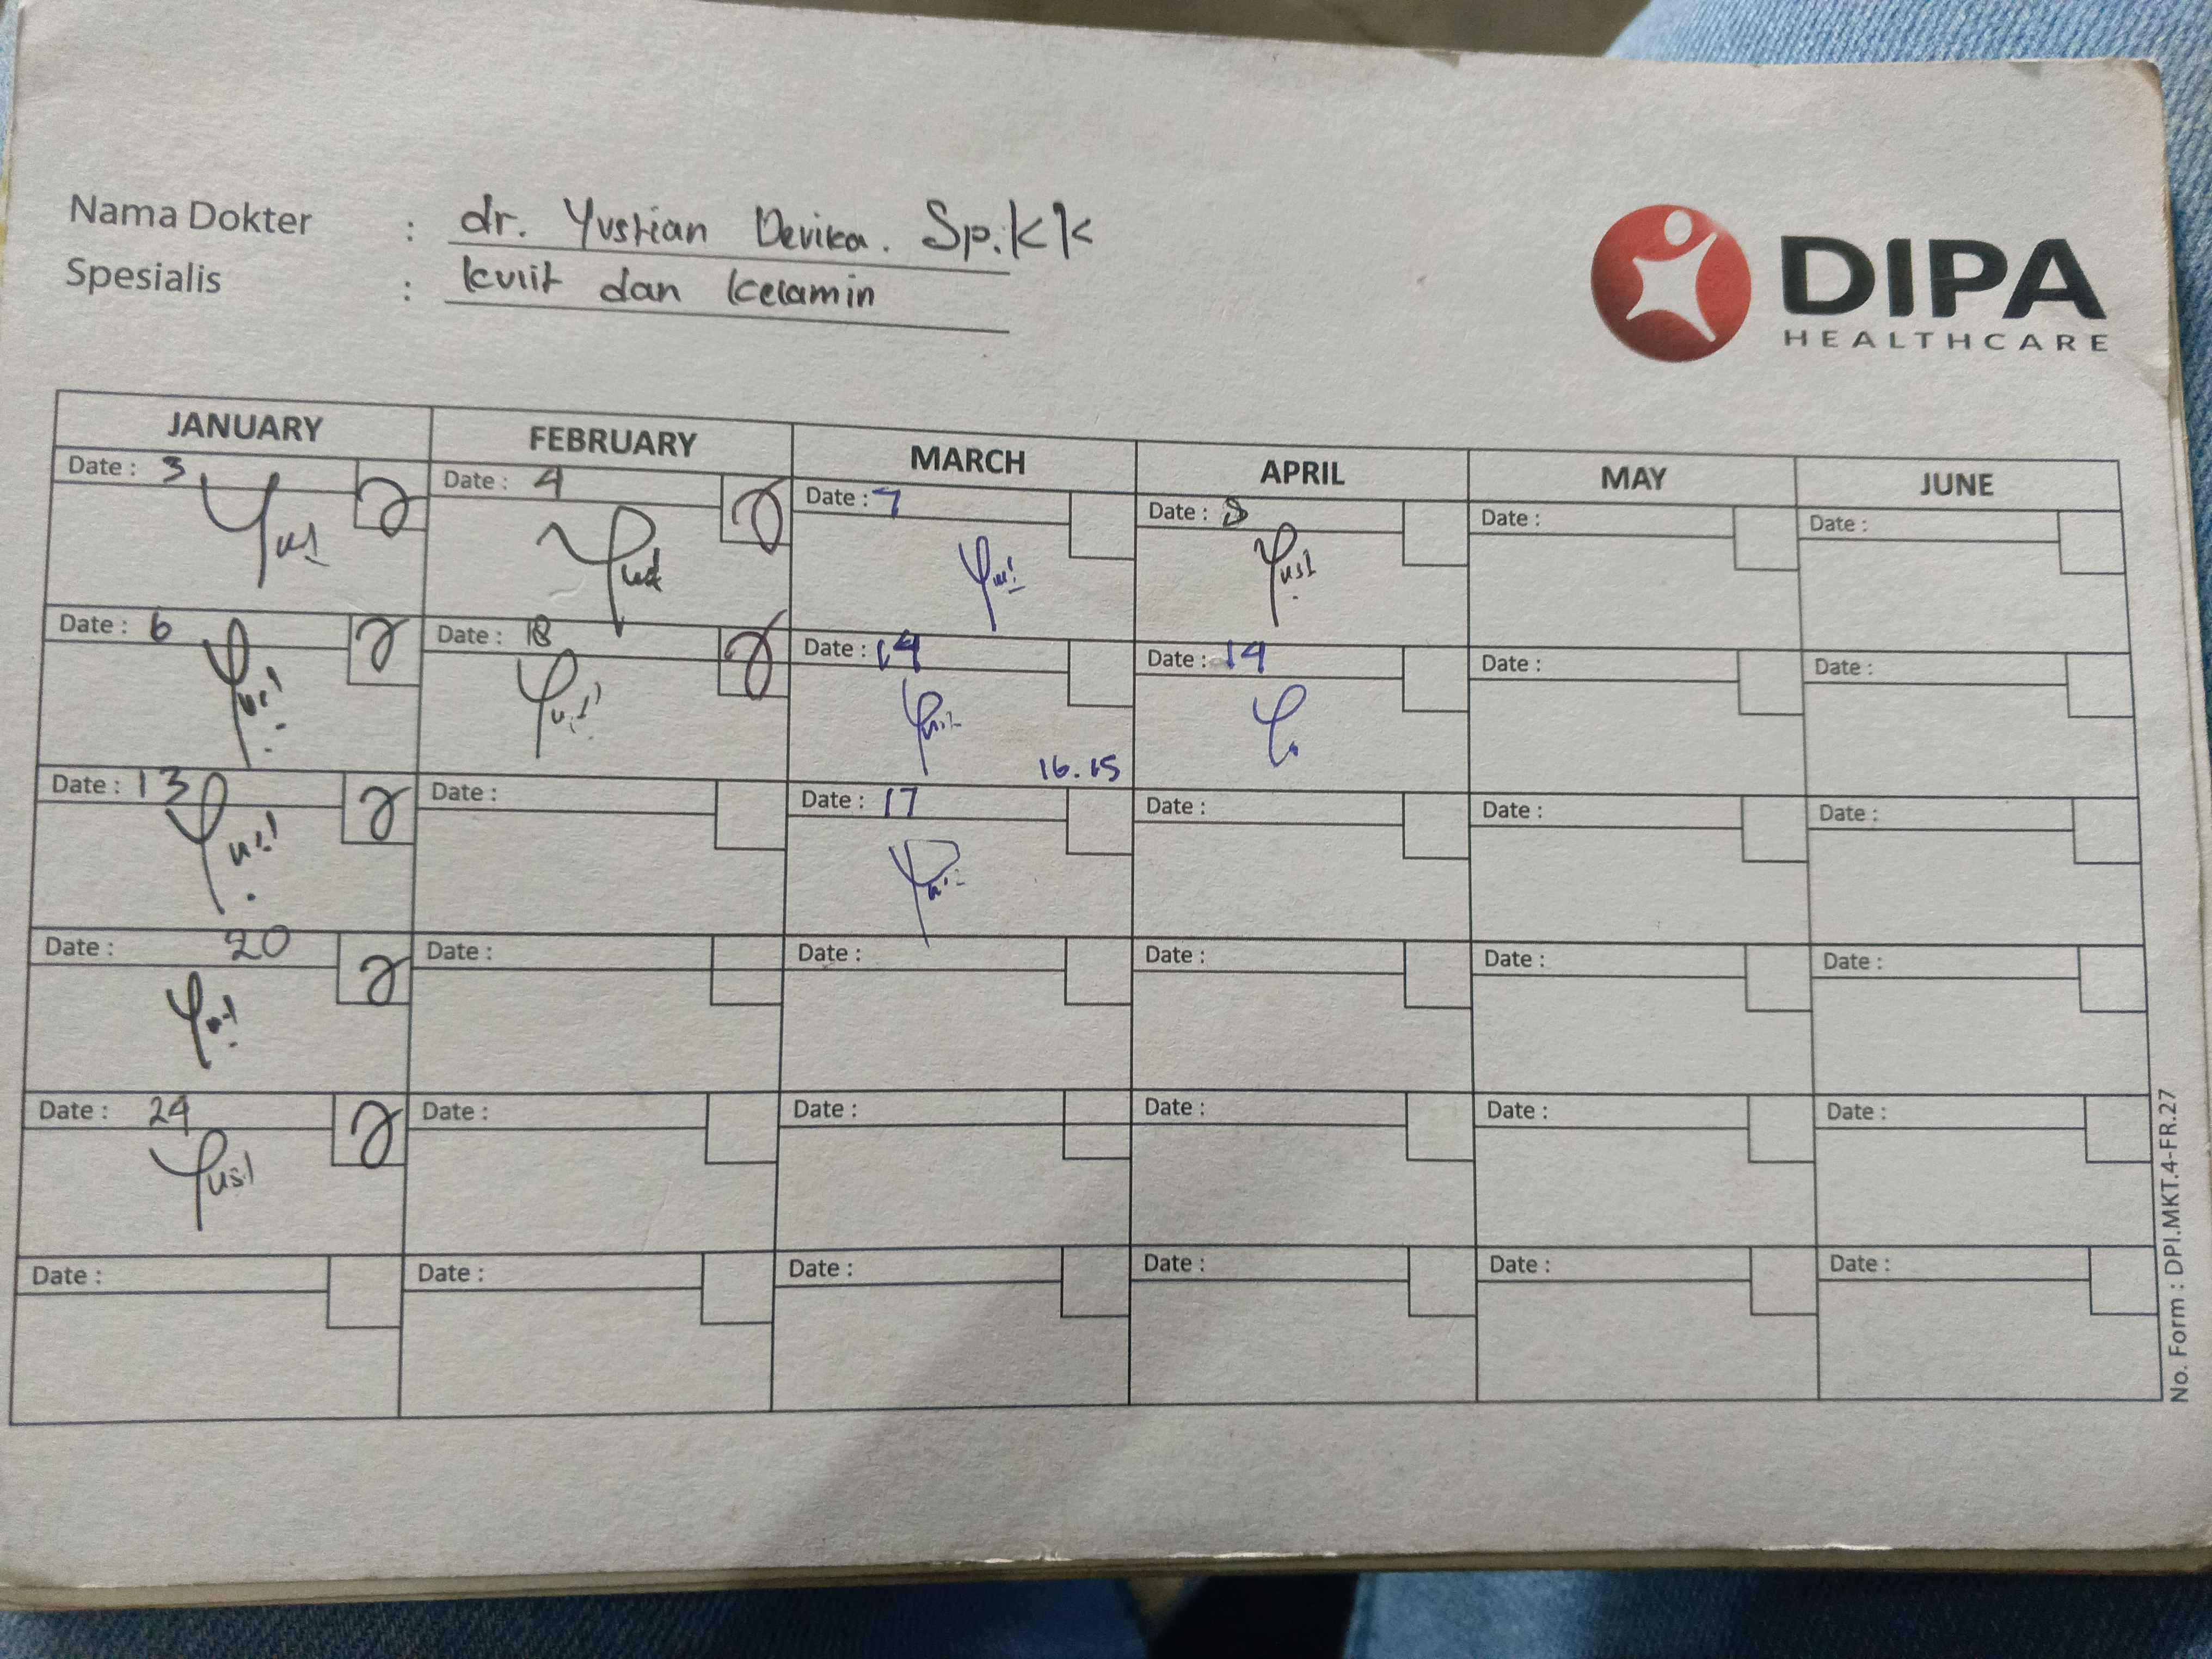 Nama Dokter : dr. Yustian Devika. Sp.KK
Spesialis : kulit dan kelamin
DIPA
HEALTHCARE
JANUARY FEBRUARY MARCH APRIL MAY JUNE
Date : 3 Date : 4 Date : 7 Date : 8 Date : Date :
Yust Yust
Date : 6 Date : 18 Date : 14 Date : 14 Date : Date :
16.15
Date : 13 Date : Date : 17 Date : Date : Date :
Date : 20 Date : Date : Date : Date : Date :
Date : 24 Date : Date : Date : Date : Date :
Yust
Date : Date : Date : Date : Date : Date :
No. Form : DPI.MKT.4-FR.27